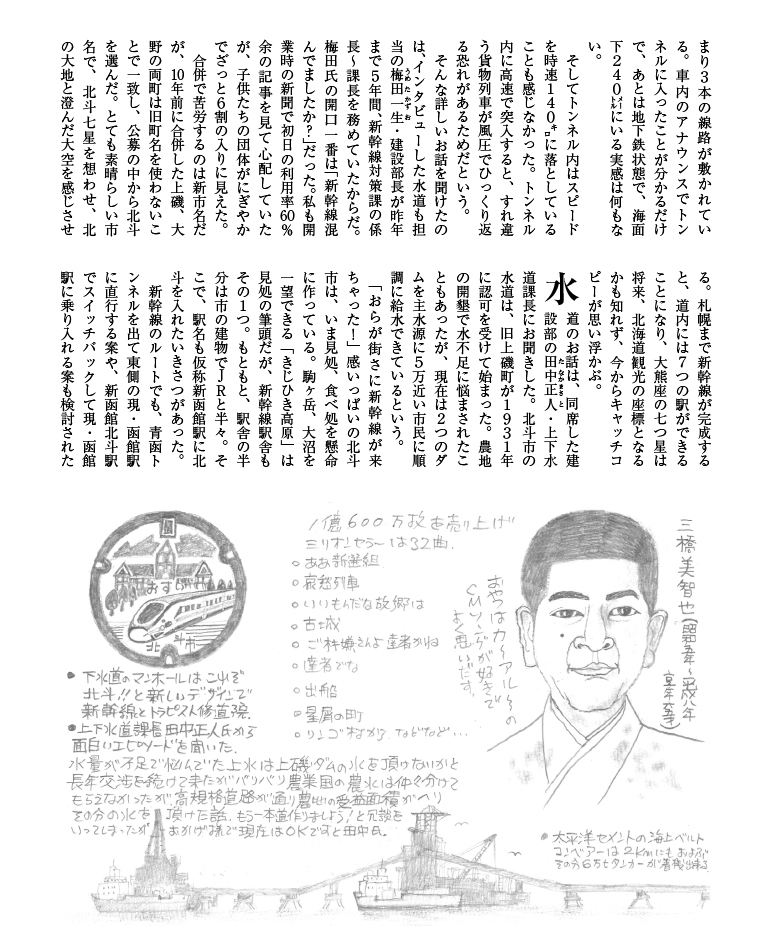 まり３本の線路が敷かれてい
る。車内のアナウンスでトン
ネルに入ったことが分かるだけ
で、あとは地下鉄状態で、海面
下２４０㍍にいる実感は何もな
い。
　そしてトンネル内はスピード
を時速１４０㌔に落としている
ことも感じなかった。トンネル
内に高速で突入すると、すれ違
う貨物列車が風圧でひっくり返
る恐れがあるためだという。
　そんな詳しいお話を聞けたの
は、インタビューした水道も担
当の梅田一生・建設部長が昨年
まで５年間、新幹線対策課の係
長～課長を務めていたからだ。
梅田氏の開口一番は「新幹線混
んでましたか？」だった。私も開
業時の新聞で初日の利用率60％
余の記事を見て心配していた
が、子供たちの団体がにぎやか
でざっと６割の入りに見えた。
　合併で苦労するのは新市名だ
が、10年前に合併した上磯、大
野の両町は旧町名を使わないこ
とで一致し、公募の中から北斗
を選んだ。とても素晴らしい市
名で、北斗七星を想わせ、北
の大地と澄んだ大空を感じさせ
る。札幌まで新幹線が完成する
と、道内には７つの駅ができる
ことになり、大熊座の七つ星は
将来、北海道観光の座標となる
かも知れず、今からキャッチコ
ピーが思い浮かぶ。
水道のお話は、同席した建
設部の田中正人・上下水
道課長にお聞きした。北斗市の
水道は、旧上磯町が１９３１年
に認可を受けて始まった。農地
の開墾で水不足に悩まされたこ
ともあったが、現在は２つのダ
ムを主水源に５万近い市民に順
調に給水できているという。
　「おらが街さに新幹線が来
ちゃったー」感いっぱいの北斗
市は、いま見処、食べ処を懸命
に作っている。駒ヶ岳、大沼を
一望できる「きじひき高原」は
見処の筆頭だが、新幹線駅舎も
その１つ。もともと、駅舎の半
分は市の建物でＪＲと半々。そ
こで、駅名も仮称新函館駅に北
斗を入れたいきさつがあった。
　新幹線のルートでも、青函ト
ンネルを出て東側の現・函館駅
に直行する案や、新函館北斗駅
でスイッチバックして現・函館
駅に乗り入れる案も検討された
三橋美智也(昭和五年～平成八年
享年六五才)
おやつはカールの
CMソングが好きで
よく思いだす。
1億600万枚を売り上げ
ミリオンセラーは32曲.
○ああ新選組
○哀愁列車
○いいもんだな故郷は
○古城
○ご機嫌さんよ達者かね
○達者でな
○出船
○星屑の町
○リンゴ村から などなど…
おすい
北斗市
●下水道のマンホールはこれぞ
北斗!!と新しいデザインで
新幹線とトラピスト修道院.
●上下水道課長田中正人氏から
面白いエピソードを聞いた.
水量が不足で悩んでた上水は上磯ダムの水を頂けないかと
長年交渉を続けて来たがバリバリ農業国の農水は仲々分けて
もらえなかったが高規格道路が通り農地の受益面積がへり
その分の水を頂けた話. もう一本道作りましょう!と冗談を
いってしまったがおかげ様で現在はOKですと田中氏.
●太平洋セメントの海上ベルト
コンベアーは2kmにもおよぶ
その分6万tタンカーが着桟出来る